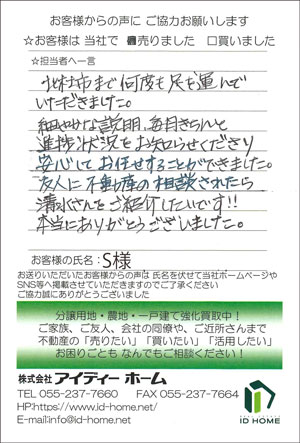 お客様からの声に ご協力お願いします
☆お客様は 当社で ■売りました □買いました
☆担当者へ一言
北杜市まで何度も足を運んで
いただきました。
細やかな説明、毎月きちんと
進捗状況をお知らせくださり
安心してお任せすることができました。
友人に不動産の相談されたら
清水さんをご紹介したいです!!
本当にありがとうございました。
お客様の氏名:S様
お送りいただいたお客様からの声は 氏名を伏せて当社ホームページや
SNS等へ掲載させていただきますのでご了承ください
ご協力誠にありがとうございました
分譲用地・農地・一戸建て強化買取中!
ご家族、ご友人、会社の同僚や、ご近所さんまで
不動産の「売りたい」「買いたい」「活用したい」
お困りごとも なんでもご相談ください!
株式会社 アイディー ホーム
TEL 055-237-7660 FAX 055-237-7664
HP:https://www.id-home.net/
E-mail:info@id-home.net
ID HOME